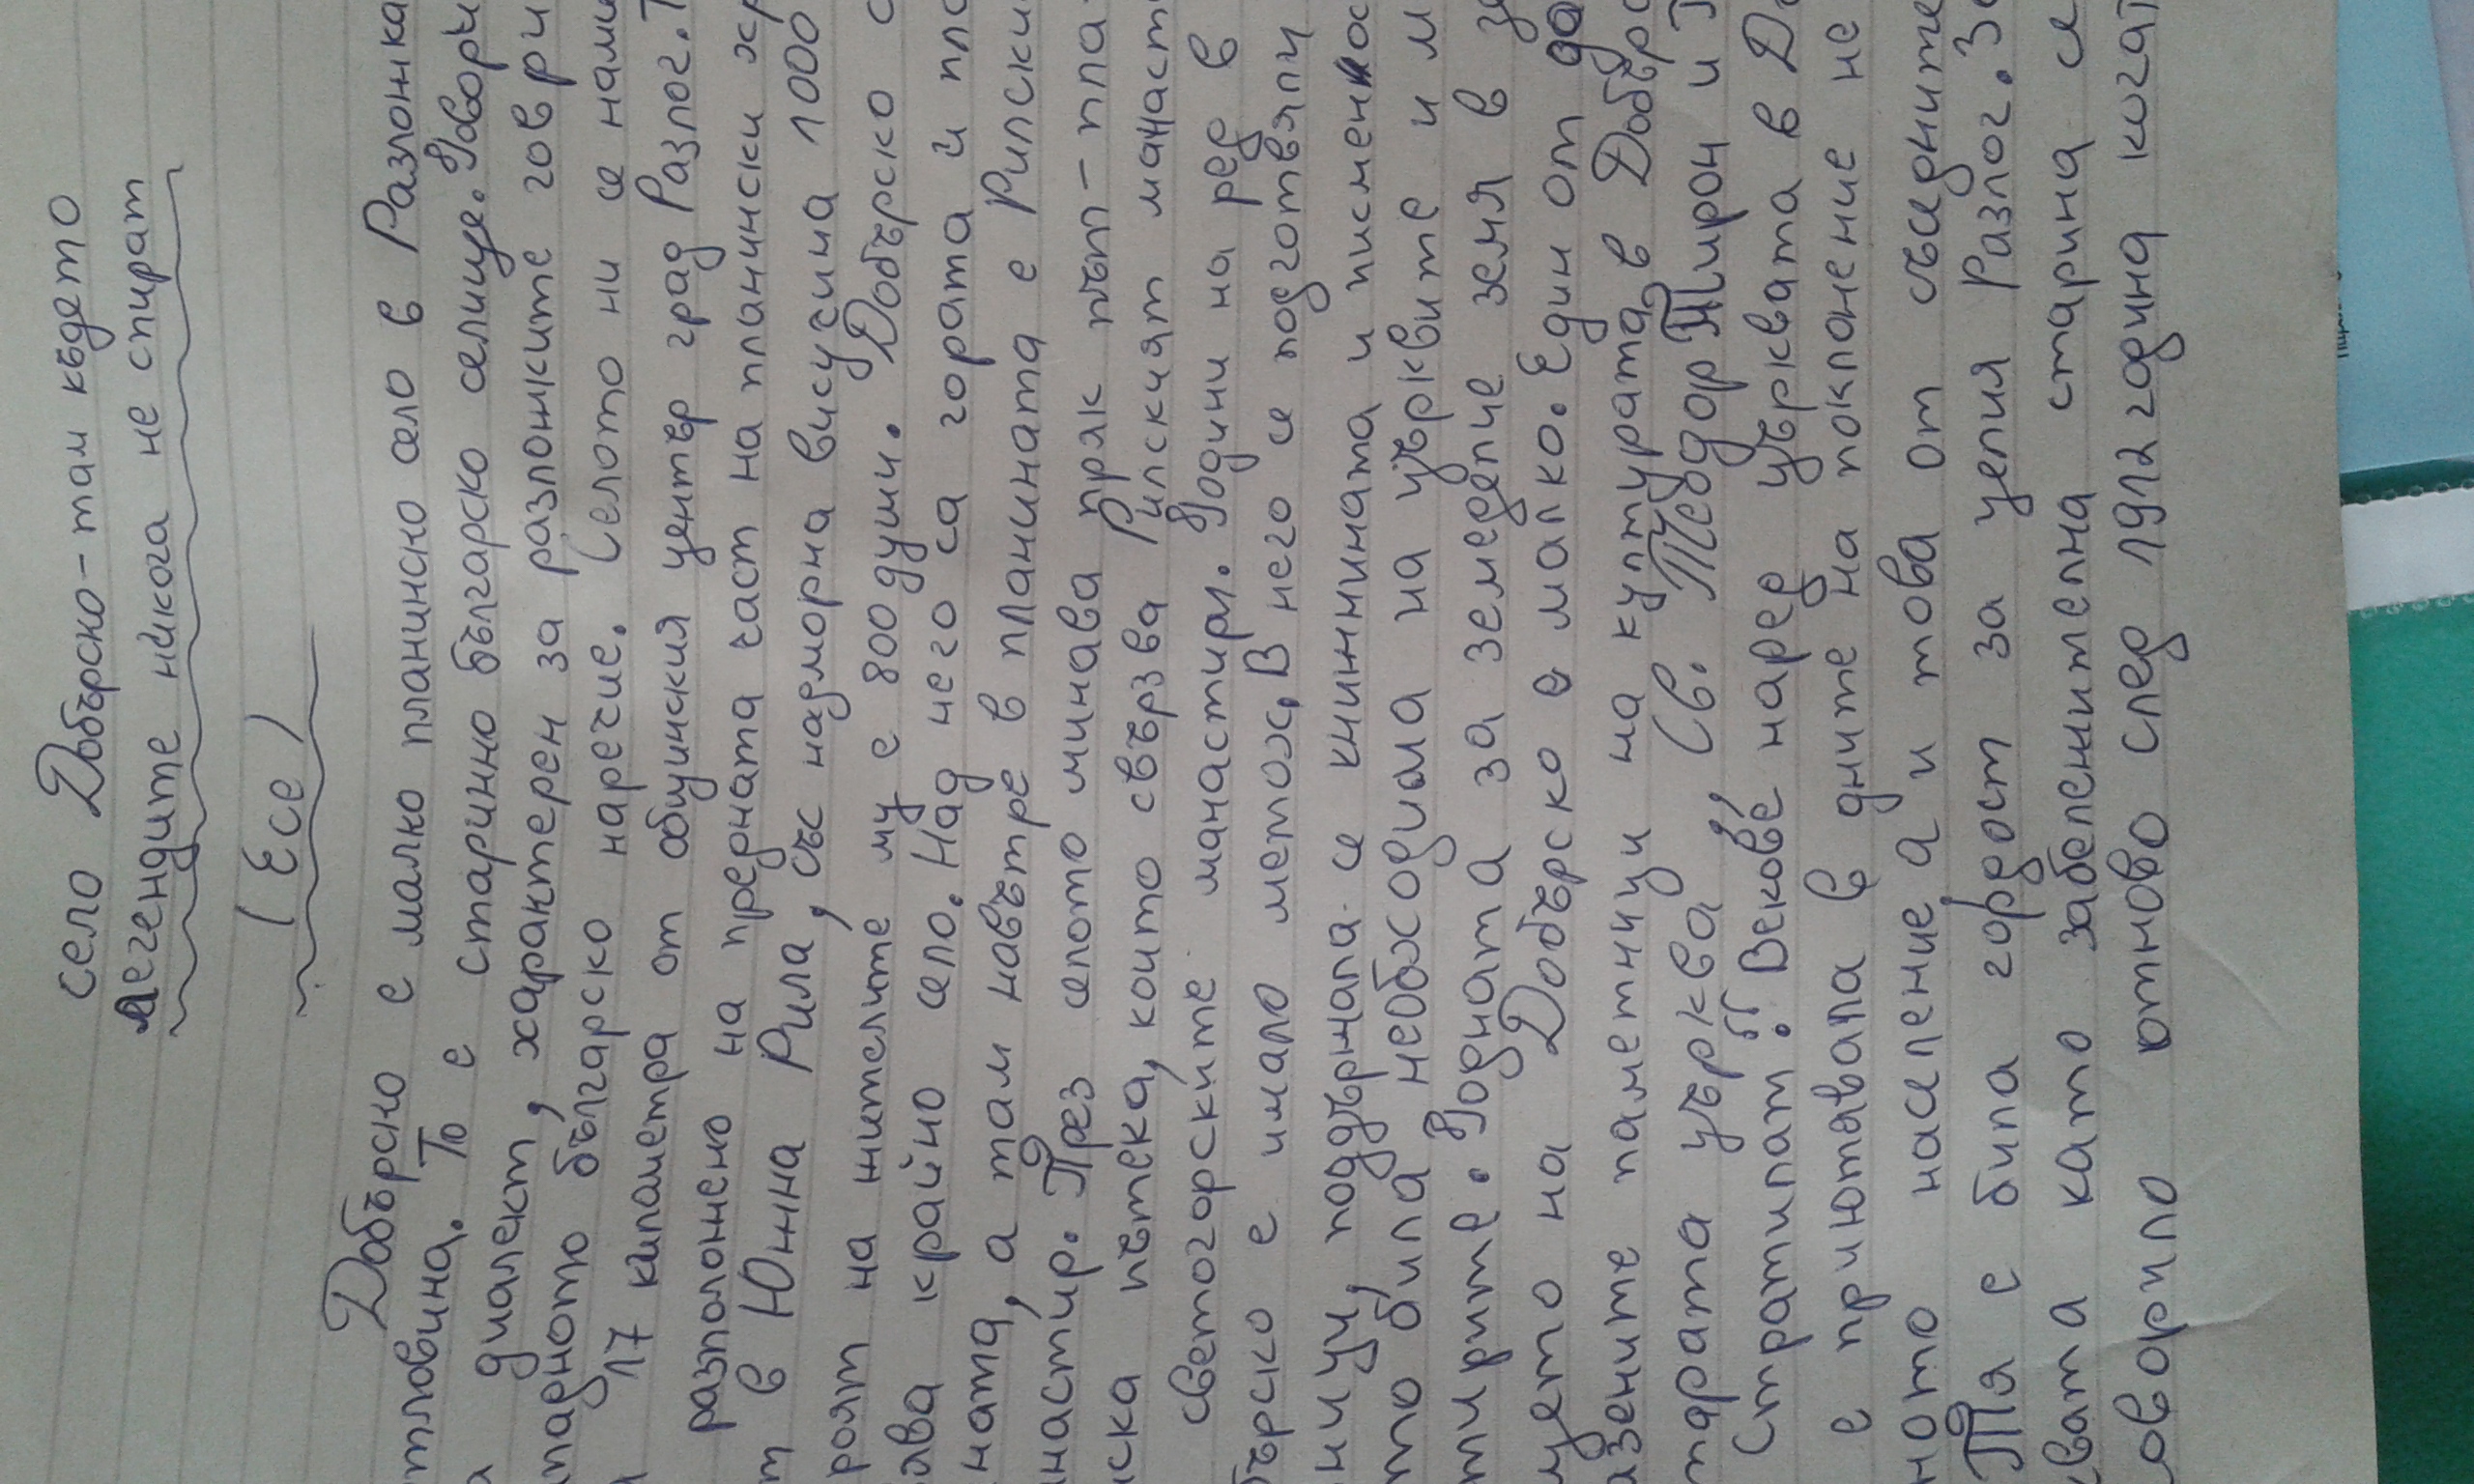 село Добърско - там където
Легендите никога не спират
(Есе)
Добърско е малко планинско село в Разложка
тловина. То е старинно българско селище. Говори
диалект, характерен за разложките говори
падното българско наречие. Селото ни се нами
17 километра от общинския център град Разлог. Т
разположено на предната част на планински хр
т в Южна Рила, със надморна височина 1000
роят на жителите му е 800 души. Добърско с
ява крайно село. Над него са гората и пла
ната, а там навътре в планината е Рилски
настир. През селото минава пряк път - пла
ска пътека, които свързва Рилският манаст
светогорските манастири. Години на ред в
бърско е имало метох. В него се подготвяли
ници, поддържала се книжнината и писменос
то била необходима на църквите и м
тирите. Годната за земеделие земя в зе
цето на Добърско е малко. Един от до
азените паметници на културата в Добърс
тарата църква „Св. Теодор Тирон и Т
Стратилат". Векове наред църквата в До
е приютявала в дните на поклонение не
ното население а и това от съседните
Тя е била гордост за целия Разлог. За
вата като забележителна старина се
оворило отново след 1912 година когат